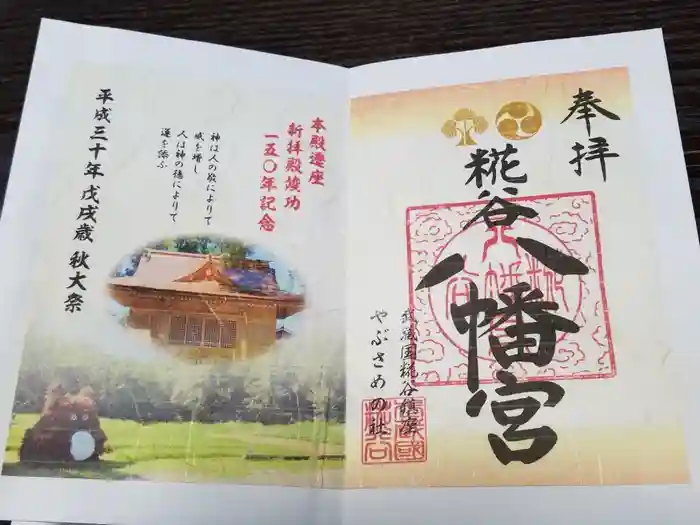 奉拝
糀谷
八幡宮
武蔵国糀谷鎮座
やぶさめの社
本殿遷座
新拝殿竣功
一五〇年記念
神は人の敬によりて
威を増し
人は神の徳によりて
運を添ふ
平成三十年 戊戌歳 秋大祭